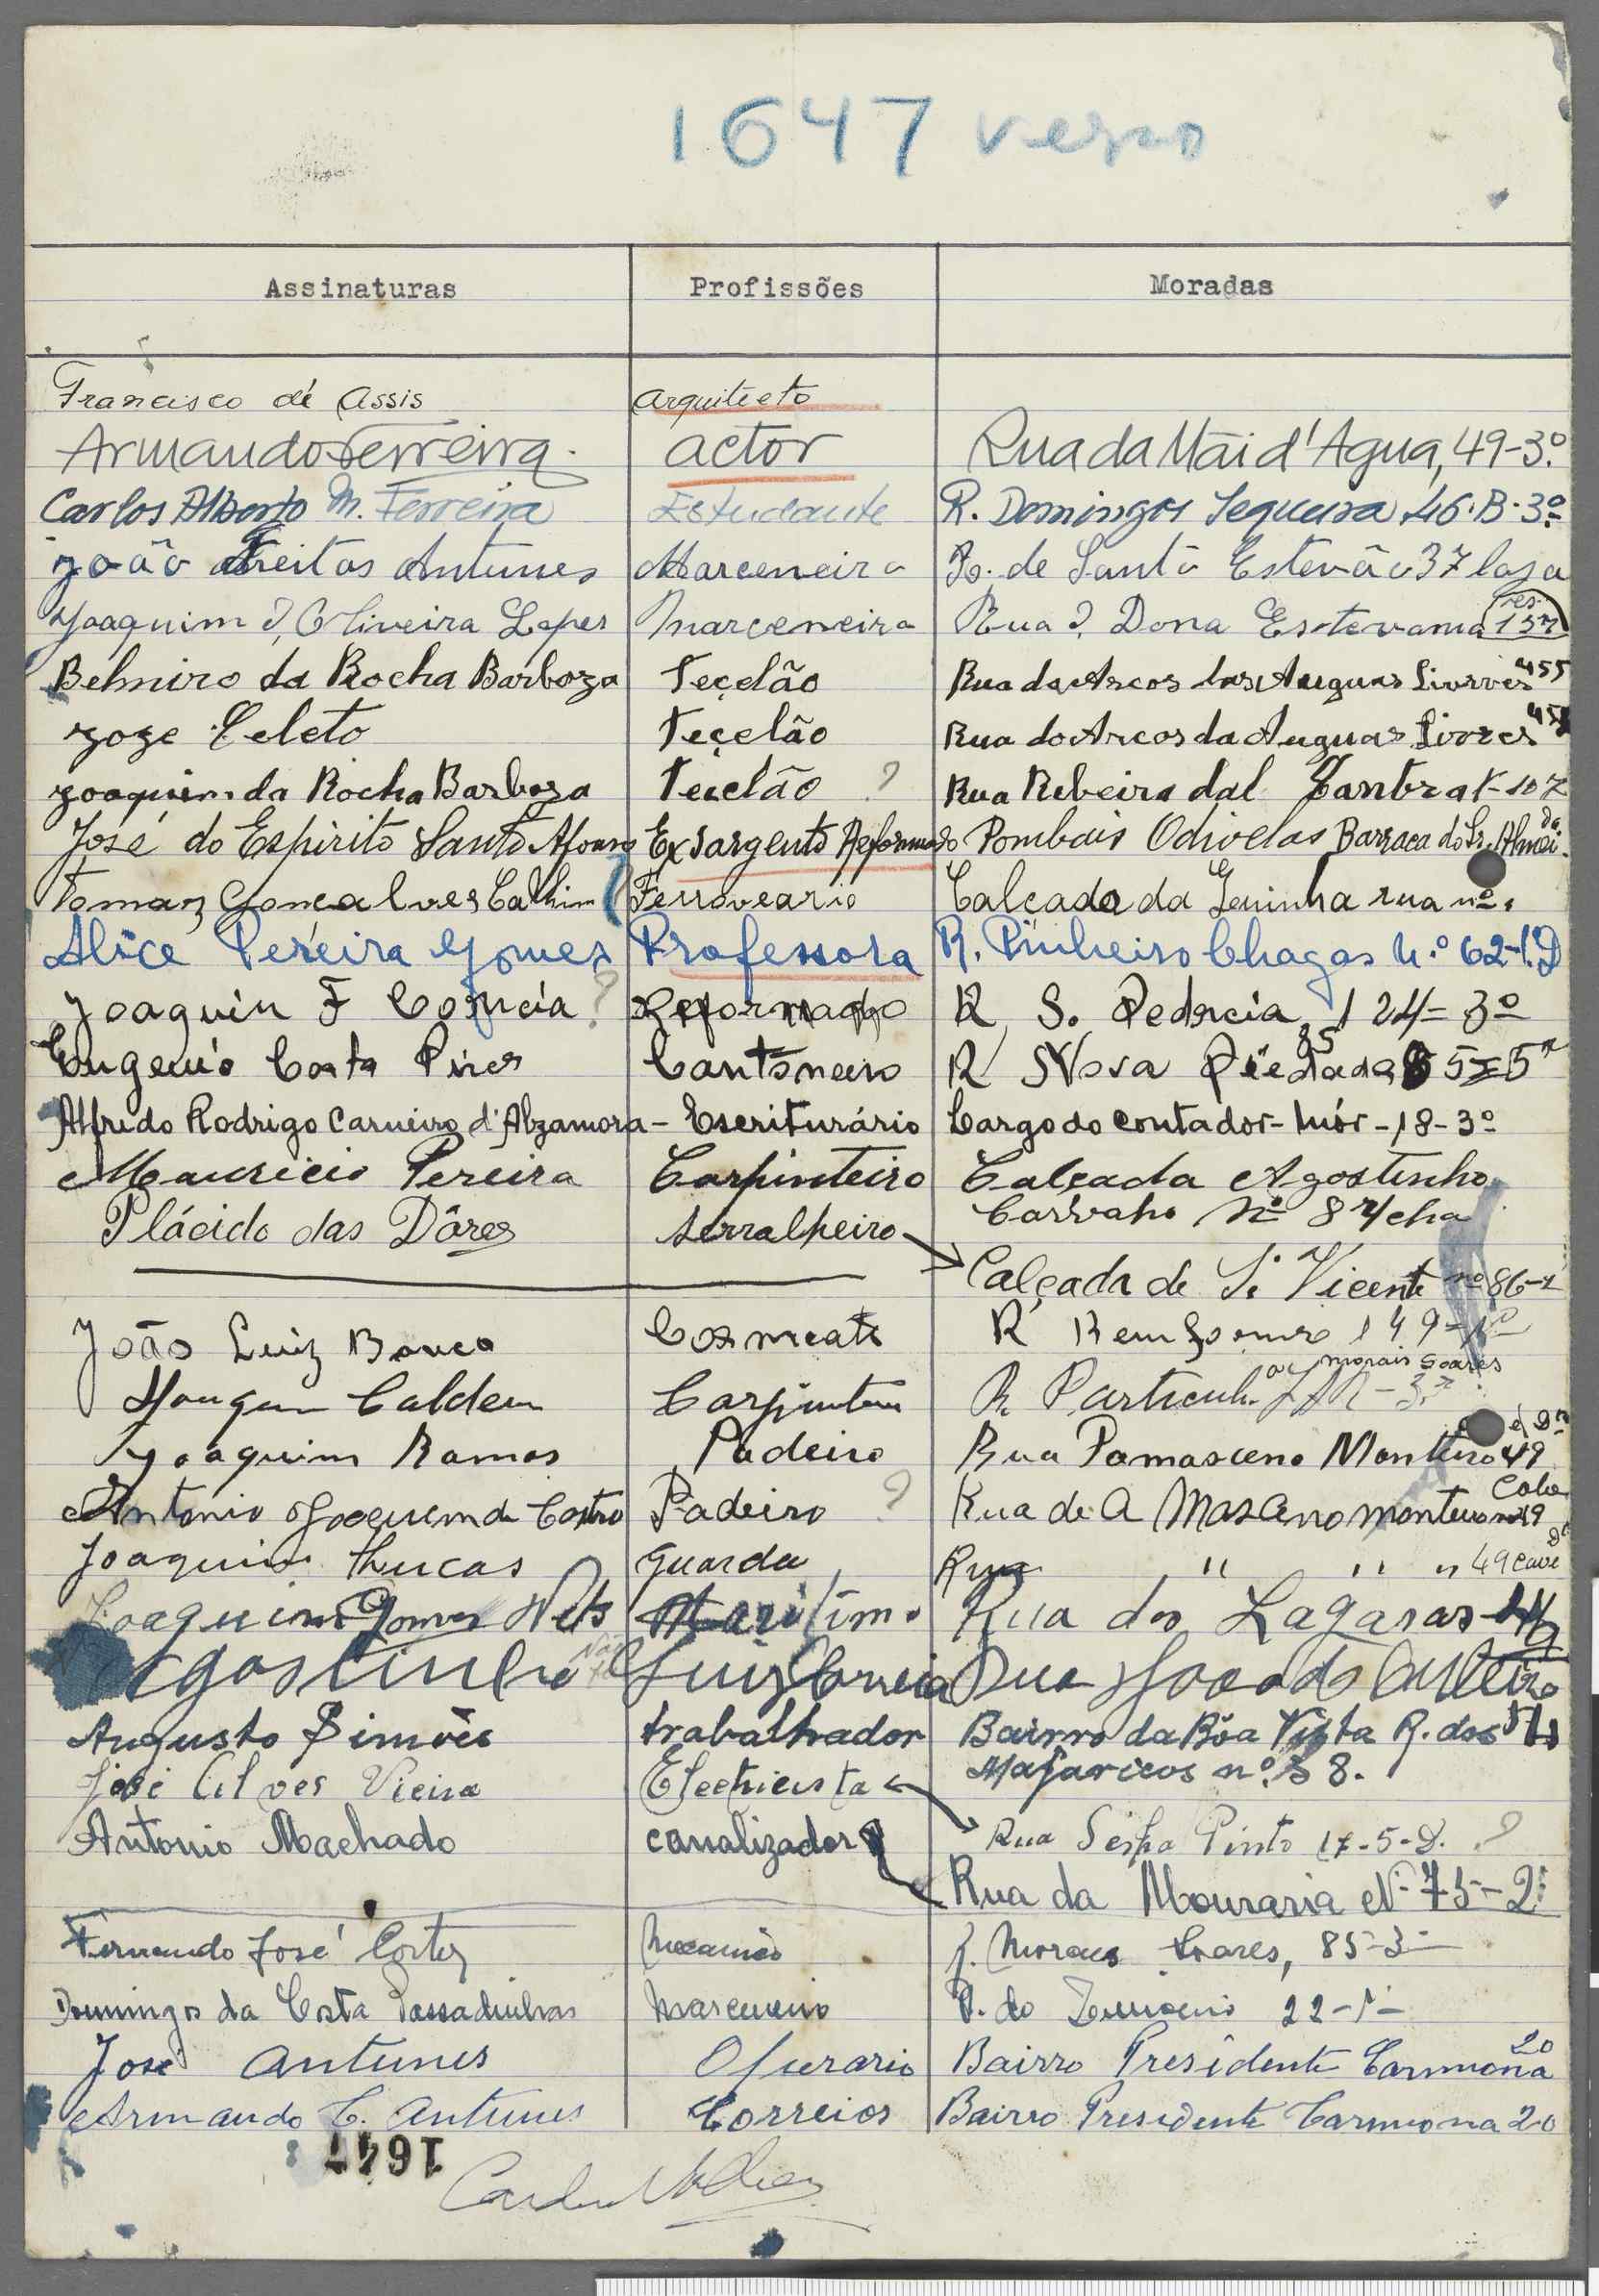 1647 verso
Assinaturas Profissões Moradas
Francisco de Assis arquitecto
Armando Ferreira actor Rua da Mãi d'Agua, 49-3.º
Carlos Alberto M. Ferreira Estudante R. Domingos Sequeira 46-B-3º
João Freitas Antunes Marceneiro R. de Santo Estevão 37 loja
Joaquim d'Oliveira Lopes Marceneiro Rua d. Dona Estevania 137
Belmiro da Rocha Barboza Teçelão Rua do Arcos das Auguas Livrves 455
joze Teçelão Rua do Arcos da Auguas Livres
joaquim da Rocha Barboza Teclão ? Rua Rebeira dal
José do Espirito Santo Afonso Ex sargento Reformado Pombais Odivelas Barraca do Sr. Almeida
Tomaz Goncalves Ferroveario Calçada da rua nº
Alice Pereira Gomes Professora R. Pinheiro Chagas N.º 62-1.º D
Joaquin F Correia ? Reformado R. S. 124-3º
Eugenio Costa Pires Cantoneiro R Nova Piedada
Alfredo Rodrigo Carneiro d'Alzamora - Escriturário Largo do contador-Mór-18-3º
Mauricio Pereira Carpinteiro Calçada Agostinho
Carvaho Nº 8
Plácido das Dôres serralheiro
Calçada de S. Vicente nº 86
João Luiz R 149
morais soares
Carpinteiro R. Particular
Joaquim Ramos Padeiro Rua Damasceno Monteiro 49
Antonio Joaquem da Castro Padeiro ? Rua de A Mascano monteiro 49
Joaquim Lucas guarda Rua " " " 49 cave
Joaquim Gomes Neto Maritimo Rua dos Lagares
Agostinho Luiz Correia Rua
Augusto Simões trabalhador Bairro da Bôa Vista R. dos
Majaricos nº 8.
José Alves Vieira Electricista
Rua Serpa Pinto 17-5-D. ?
Antonio Machado canalizador
Rua da Mouraria Nº 75-2º
Fernando José Cortez Mecanico R. Moraes Soares, 85-3º
Domingos da Costa Passadinhas Marceneiro R. do 22-1º
José Antunes Operario Bairro Presidente Carmona 20
Armando C. Antunes Correios Bairro Presidente Carmona 20
1647